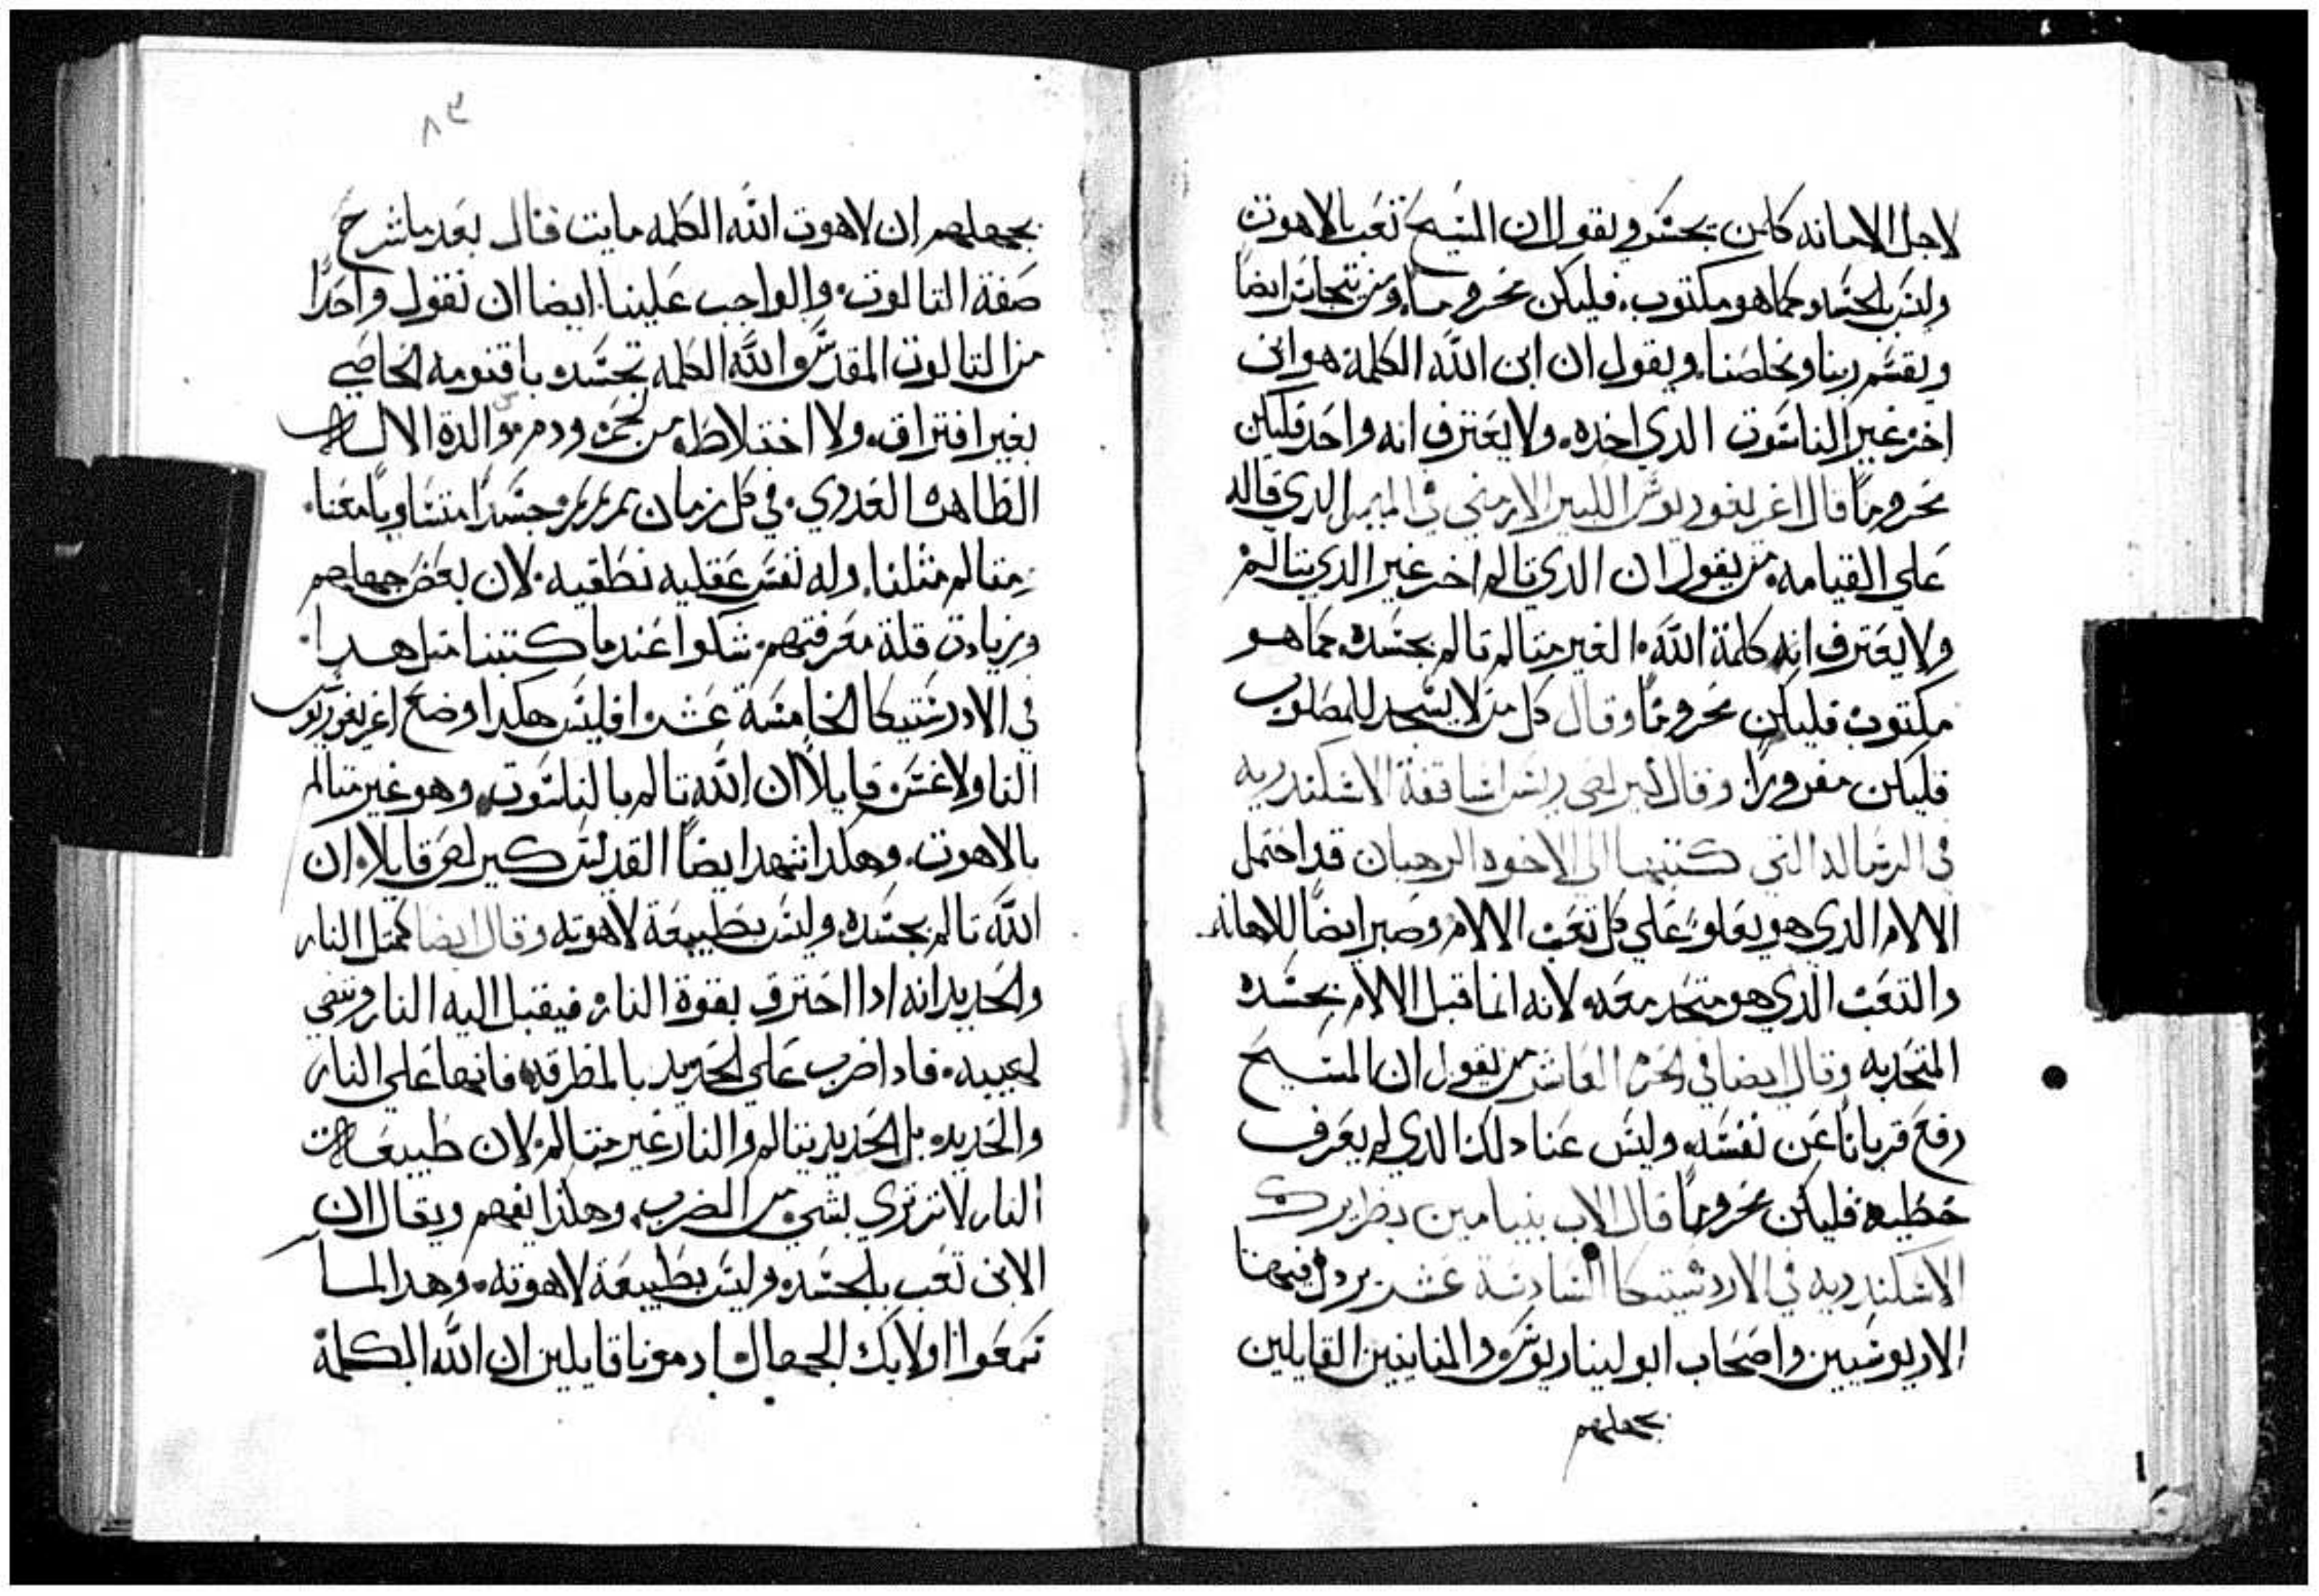 لاجل الامانه كامن يجسر ويقول ان المسيح تعب بالاهوت
وليس بالجسد وكما هو مكتوب. فليكن محروما. ومن يتجاسر ايضا
ويقسم ربنا ومخلصنا. ويقول ان ابن الله الكلمة هو ابن
اخر غير الناسوت الدي اخده. ولا يعترف انه واحد فليكن
محروماً قال اغريغوريوس الكبير الارمني في الميمر الدي قاله
علي القيامه. من يقول ان الدي تالم اخر غير الدي يتالم
ولا يعترف انه كلمة الله. الغير متالم تالم بجسده كما هو
مكتوب فليكن محروماً وقال كل من لا يسجد للمصلوب
فليكن مفروزاً. وقال كيرلص ريس اساقفة الاسكندريه
في الرساله التي كتبها الي الاخوه الرهبان قد احتمل
الالام الدي هو يعلو علي كل تعب الالام وصبر ايضاً للاهانه
والتعب الدي هو متحد معه. لانه انما قبل الالام بجسده
المتحد به وقال ايضا في الحرم العاشر من يقول ان المسيح
رفع قرباناً عن نفسه. وليس عنا دلك الدي لم يعرف
خطيه فليكن محروماً قال الاب بنيامين بطريرك
الاسكندريه في الاردستيكا السادسة عشر يرد فيها
الاريوسيين واصحاب ابوليناريوس والمنافقين القايلين
بجهلهم
٨٣
بجهلهم ان لاهوت الله الكلمه مايت فقال بعد ما شرح
صفة التالوت. والواجب علينا ايضا ان نقول واحداً
من التالوت المقدس والله الكلمه تجسد باقنومه الخاصي
بغير افتراق. ولا اختلاط. من لحم ودم موالدة الاله
الطاهره العدري. في كل زمان مرتمريم وجسداً متساوياً معنا.
متالم مثلنا. وله نفس عقليه نطقيه. لان بعض جهلهم
وزيادت قلة معرفتهم. شكوا عندما كتبنا متل هدا.
في الاردستيكا الخامسة عشر افليس هكدا اوضح اغريغوريوس
التاولاغس قايلاً ان الله تالم بالناسوت. وهو غير متالم
بالاهوت. وهكدا شهد ايضاً القديس كيرلص قايلا. ان
الله تالم بجسده. وليس بطبيعة لاهوته وقال ايضا كمتل النار
والحديد انه ادا احترق بقوة النار. فيقبل اليه النار وتبقي
لهيبيه. فادا ضرب علي الحديد بالمطرقه. فانها علي النار
والحديد. بل الحديد يتالم والنار غير متالم. لان طبيعت
النار لا ترتزي بشي من الضرب. وهكدا يفهم ويقال ان
الابن تعب بالجسد. وليس بطبيعة لاهوته. وهدا لما
سمعوا اولايك الجهال. ادمونا قايلين ان الله الكلمة